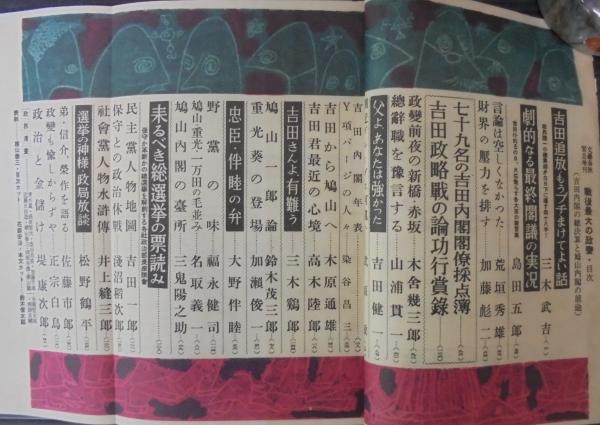 戰後最大の政變・目次
(吉田内閣の總決算と鳩山内閣の前途)
吉田追放もうブチまけてよい話 三木武吉
劇的なる最終閣議の実況
島田五郎
言論は空しくなかった 荒垣秀雄
財界の壓力を排す 加藤彪二
七十九名の吉田内閣閣僚採点簿
吉田政略戰の論功行賞錄
政變前夜の新橋・赤坂 木舍幾三郎
總辭職を豫言する 山浦貫一
父よ、あなたは強かった 吉田健一
吉田内閣年表
Y項パージの人々 染谷昌三
吉田から鳩山へ 木原通雄
吉田君最近の心境 高木陸郎
吉田さんよ、有難う 三木鶏郎
鳩山一郎論 鈴木茂三郎
重光葵の登場 加瀬俊一
忠臣・伴睦の弁 大野伴睦
野黨の味 福永健司
鳩山・重光・一万田の毛並み 名取義一
鳩山内閣の臺所 三鬼陽之助
来るべき総選挙の票読み
民主黨人物地圖 吉田一郎
保守との政治休戦 淺沼稲次郎
社會黨人物水滸傳 井上縫三郎
選挙の神様政局放談 松野鶴平
弟・信介、榮作を語る 佐藤市郎
政變も愉しからずや 正宗白鳥
政治と金儲け 堤康次郎